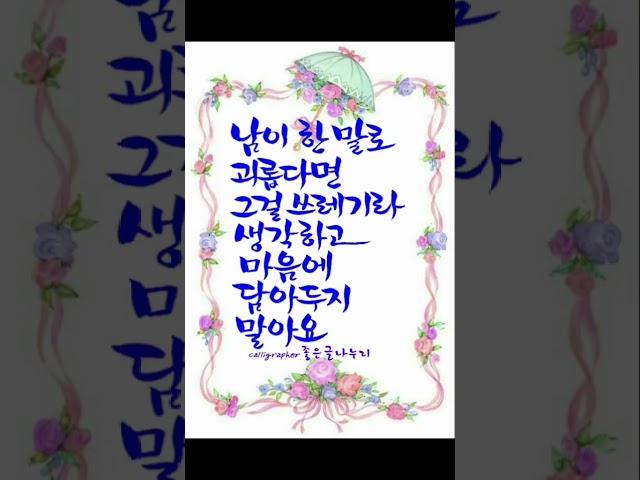 남이 한 말로
괴롭다면
그걸 쓰레기라
생각하고
마음에
담아두지
말아요
calligrapher 좋은글나누리